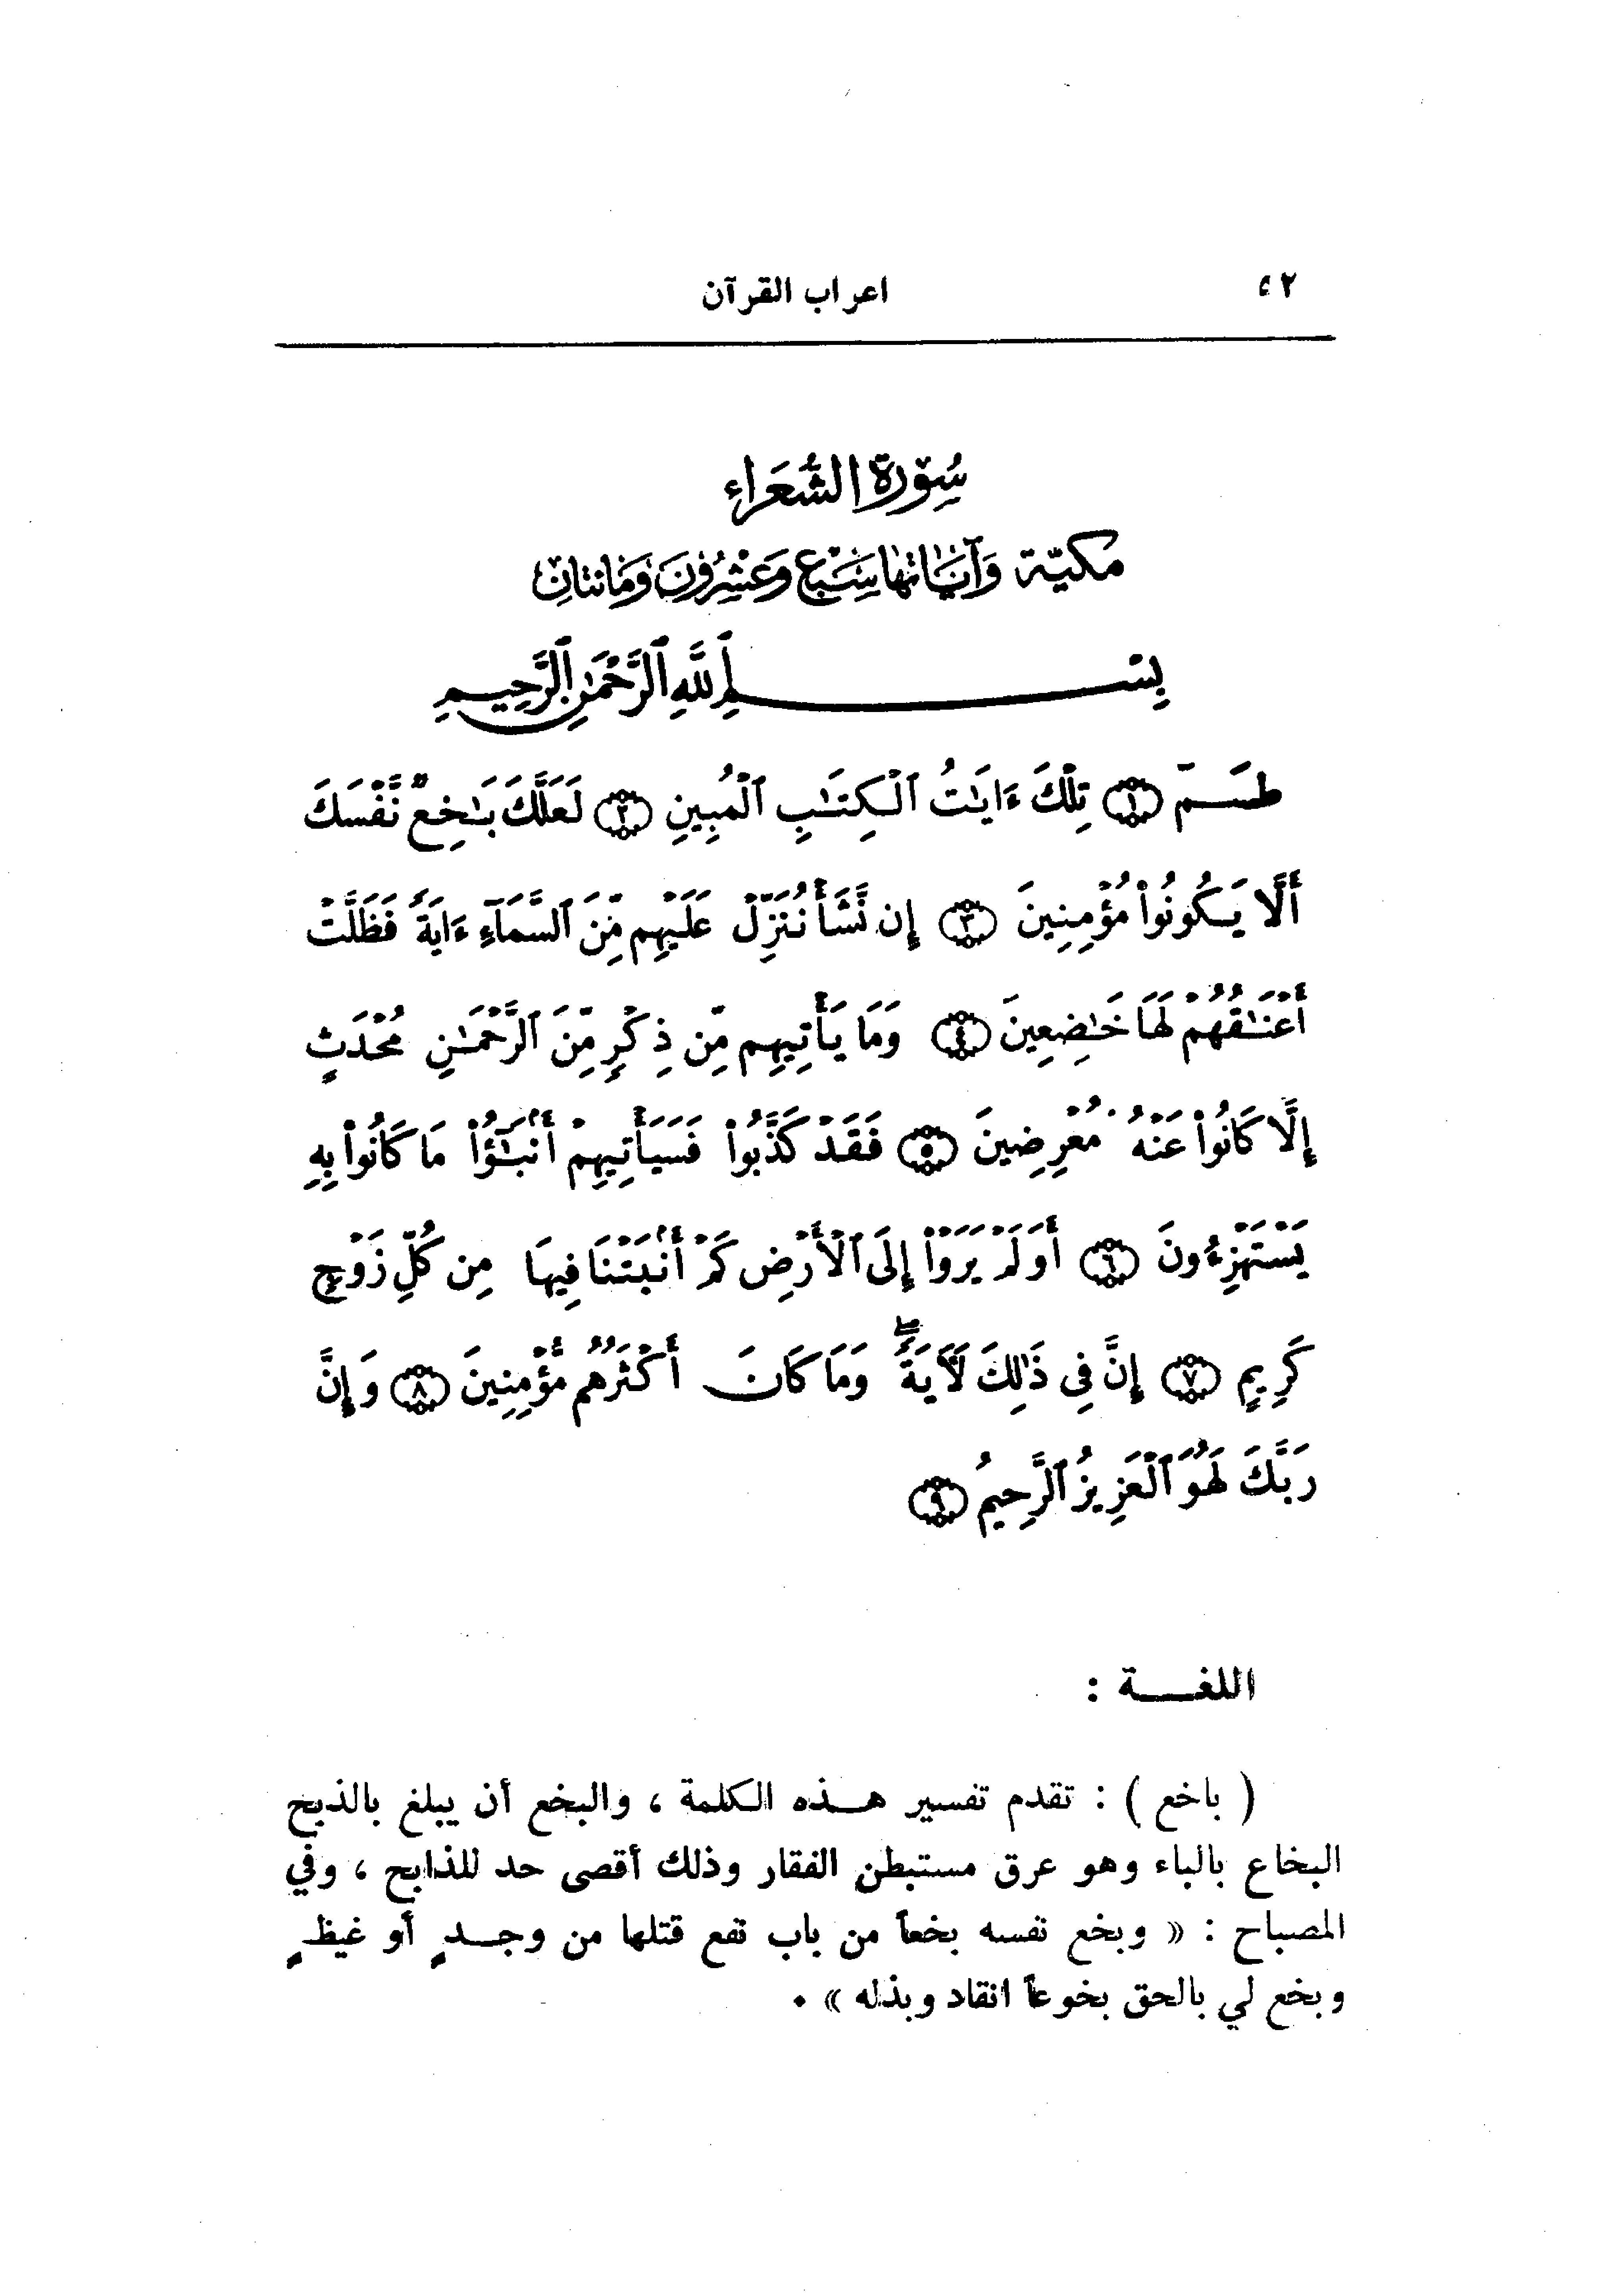 اعراب القرآن ٥٢
سُورَة الشُّعَرَاءِ
مكيّة وَآيَاتها سَبْع وَعشْرُونَ وَمَائتَانِ
بِسْمِ ٱللَّهِ ٱلرَّحْمَٰنِ ٱلرَّحِيمِ
طسٓمٓ ١ تِلْكَ ءَايَٰتُ ٱلْكِتَٰبِ ٱلْمُبِينِ ٢ لَعَلَّكَ بَٰخِعٌ نَّفْسَكَ
أَلَّا يَكُونُوا۟ مُؤْمِنِينَ ٣ إِن نَّشَأْ نُنَزِّلْ عَلَيْهِم مِّنَ ٱلسَّمَآءِ ءَايَةً فَظَلَّتْ
أَعْنَٰقُهُمْ لَهَا خَٰضِعِينَ ٤ وَمَا يَأْتِيهِم مِّن ذِكْرٍ مِّنَ ٱلرَّحْمَٰنِ مُحْدَثٍ
إِلَّا كَانُوا۟ عَنْهُ مُعْرِضِينَ ٥ فَقَدْ كَذَّبُوا۟ فَسَيَأْتِيهِمْ أَنۢبَٰٓؤُا۟ مَا كَانُوا۟ بِهِۦ
يَسْتَهْزِءُونَ ٦ أَوَلَمْ يَرَوْا۟ إِلَى ٱلْأَرْضِ كَمْ أَنۢبَتْنَا فِيهَا مِن كُلِّ زَوْجٍ
كَرِيمٍ ٧ إِنَّ فِى ذَٰلِكَ لَـَٔايَةً ۖ وَمَا كَانَ أَكْثَرُهُم مُّؤْمِنِينَ ٨ وَإِنَّ
رَبَّكَ لَهُوَ ٱلْعَزِيزُ ٱلرَّحِيمُ ٩
اللغـــة :
( باخع ) : تقدم تفسير هــذه الكلمة ، والبخع أن يبلغ بالذبح
البخاع بالباء وهو عرق مستبطن الفقار وذلك أقصى حد للذابح ، وفي
المصباح : « وبخع نفسه بخعاً من باب نفع قتلها من وجــدٍ أو غيظٍ
وبخع لي بالحق بخوعاً انقاد وبذله » .